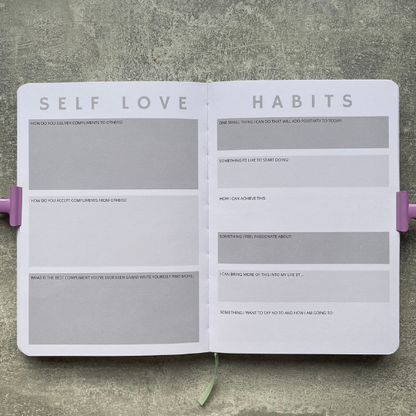 SELF LOVE
HOW DO YOU DELIVER COMPLIMENTS TO OTHERS?
HOW DO YOU ACCEPT COMPLIMENTS FROM OTHERS?
WHAT IS THE BEST COMPLIMENT YOU'VE EVER BEEN GIVEN? WRITE YOURSELF
HABITS
ONE SMALL THING I CAN DO THAT WILL ADD POSITIVITY TO TODAY?
SOMETHING I'D LIKE TO START DOING
HOW I CAN ACHIEVE THIS
SOMETHING I FEEL PASSIONATE ABOUT
I CAN BRING MORE OF THIS INTO MY LIFE BY...
SOMETHING I WANT TO SAY NO TO AND HOW I AM GOING TO